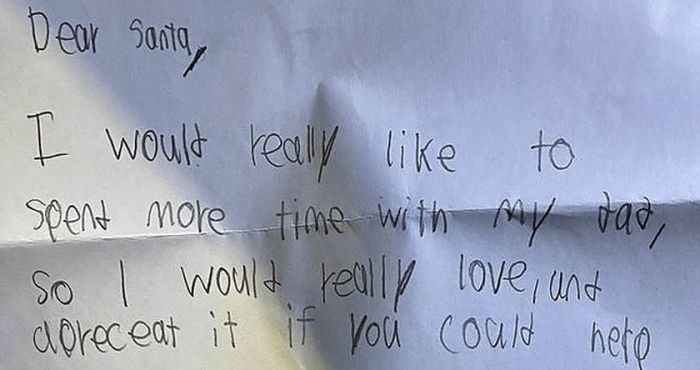 Dear Santa,
I would really like to
spend more time with my dad,
so I would really love, and
apreceat it if you could help